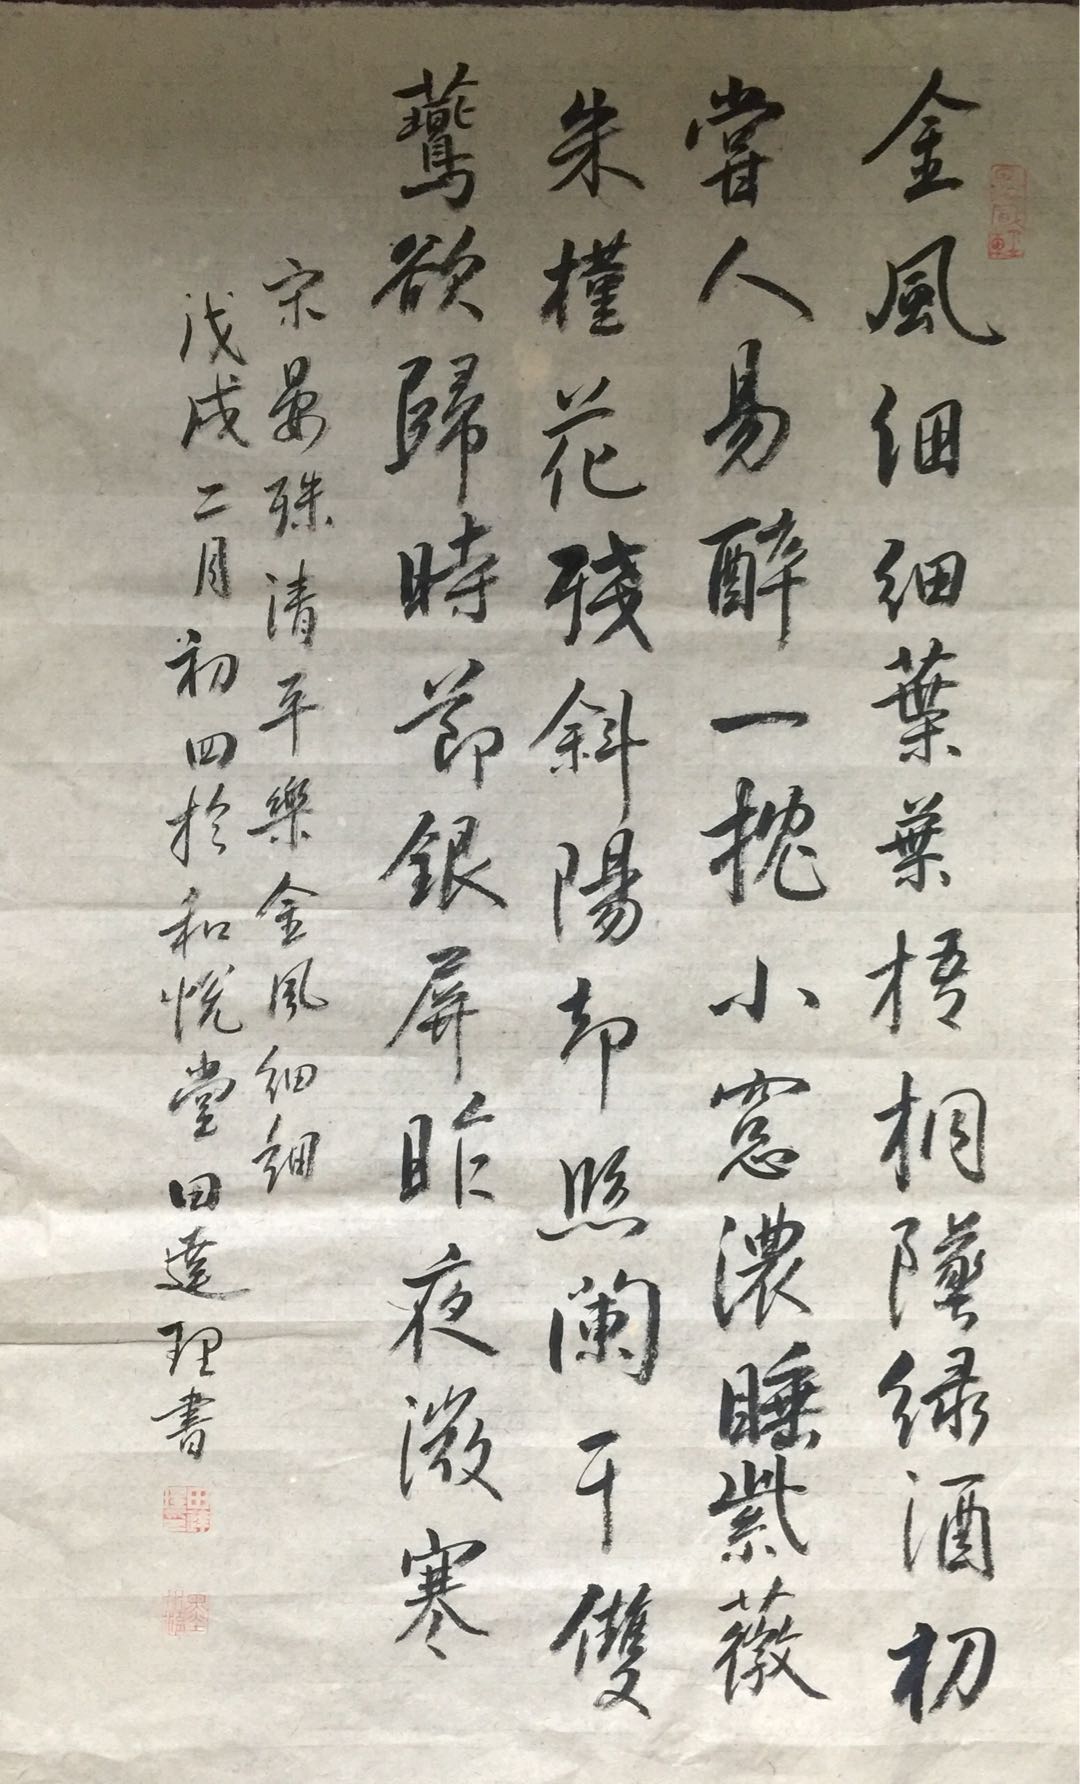 金風細細葉葉梧桐墜綠酒初
嘗人易醉一枕小窓濃睡紫薇
朱槿花殘斜陽却照闌干雙
鷰欲歸時節銀屏昨夜微寒
宋晏殊清平樂金風細細
戊戌二月初四於和悅堂田達理書